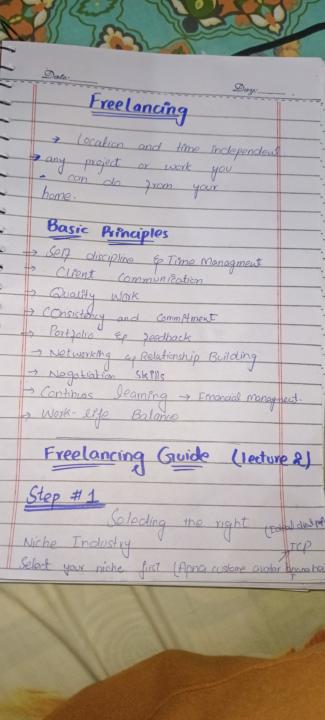 Date:
Day:
Freelancing
→ Location and time independent
→ any project or work you
can do from your
home.
Basic Principles
→ Self discipline & Time Managment
→ Client Communication
→ Quality Work
→ Consistancy and Commitment
→ Portfolio & feedback
→ Networking & Relationship Building
→ Negotiation Skills
→ Continus learning → Financial managment.
→ Work-life Balance
Freelancing Guide (lecture 2)
Step #1
Selecting the right
Niche Industry
ICP
Select your niche first (Apna custome avatar